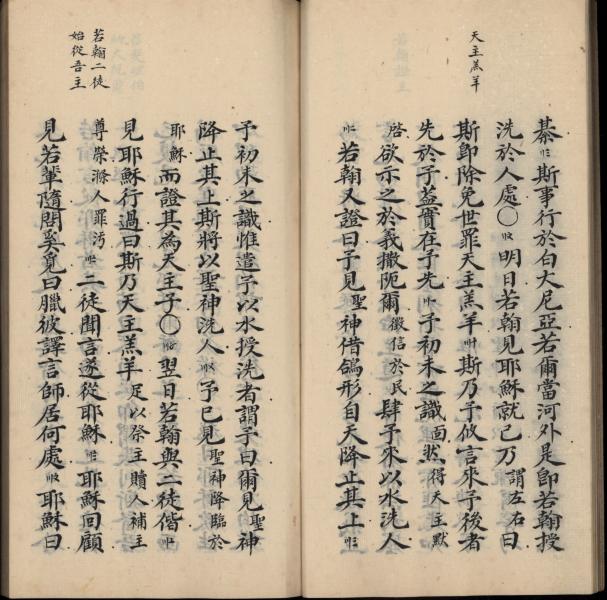 天主羔羊
綦斯事行於白大尼亞若爾當河外是卽若翰授
洗於人處○明日若翰見耶穌就己乃謂左右曰
斯卽除免世罪天主羔羊斯乃予攸言來予後者
先於予蓋實在予先予初未之識面然得天主默
啓欲示之於義撒阨爾徵信於民肆予來以水洗人
若翰又證曰予見聖神借鴿形自天降止其上
予初未之識惟遣予以水授洗者謂予曰爾見聖神
降止其上斯將以聖神洗人予已見聖神降臨於
耶穌而證其為天主子○翌日若翰與二徒偕
見耶穌行過曰斯乃天主羔羊足以祭主贖人補主
尊榮滌人罪污二徒聞言遂從耶穌耶穌回顧
見若輩隨問奚覓曰臘彼譯言師居何處耶穌曰
若翰二徒
始從吾主